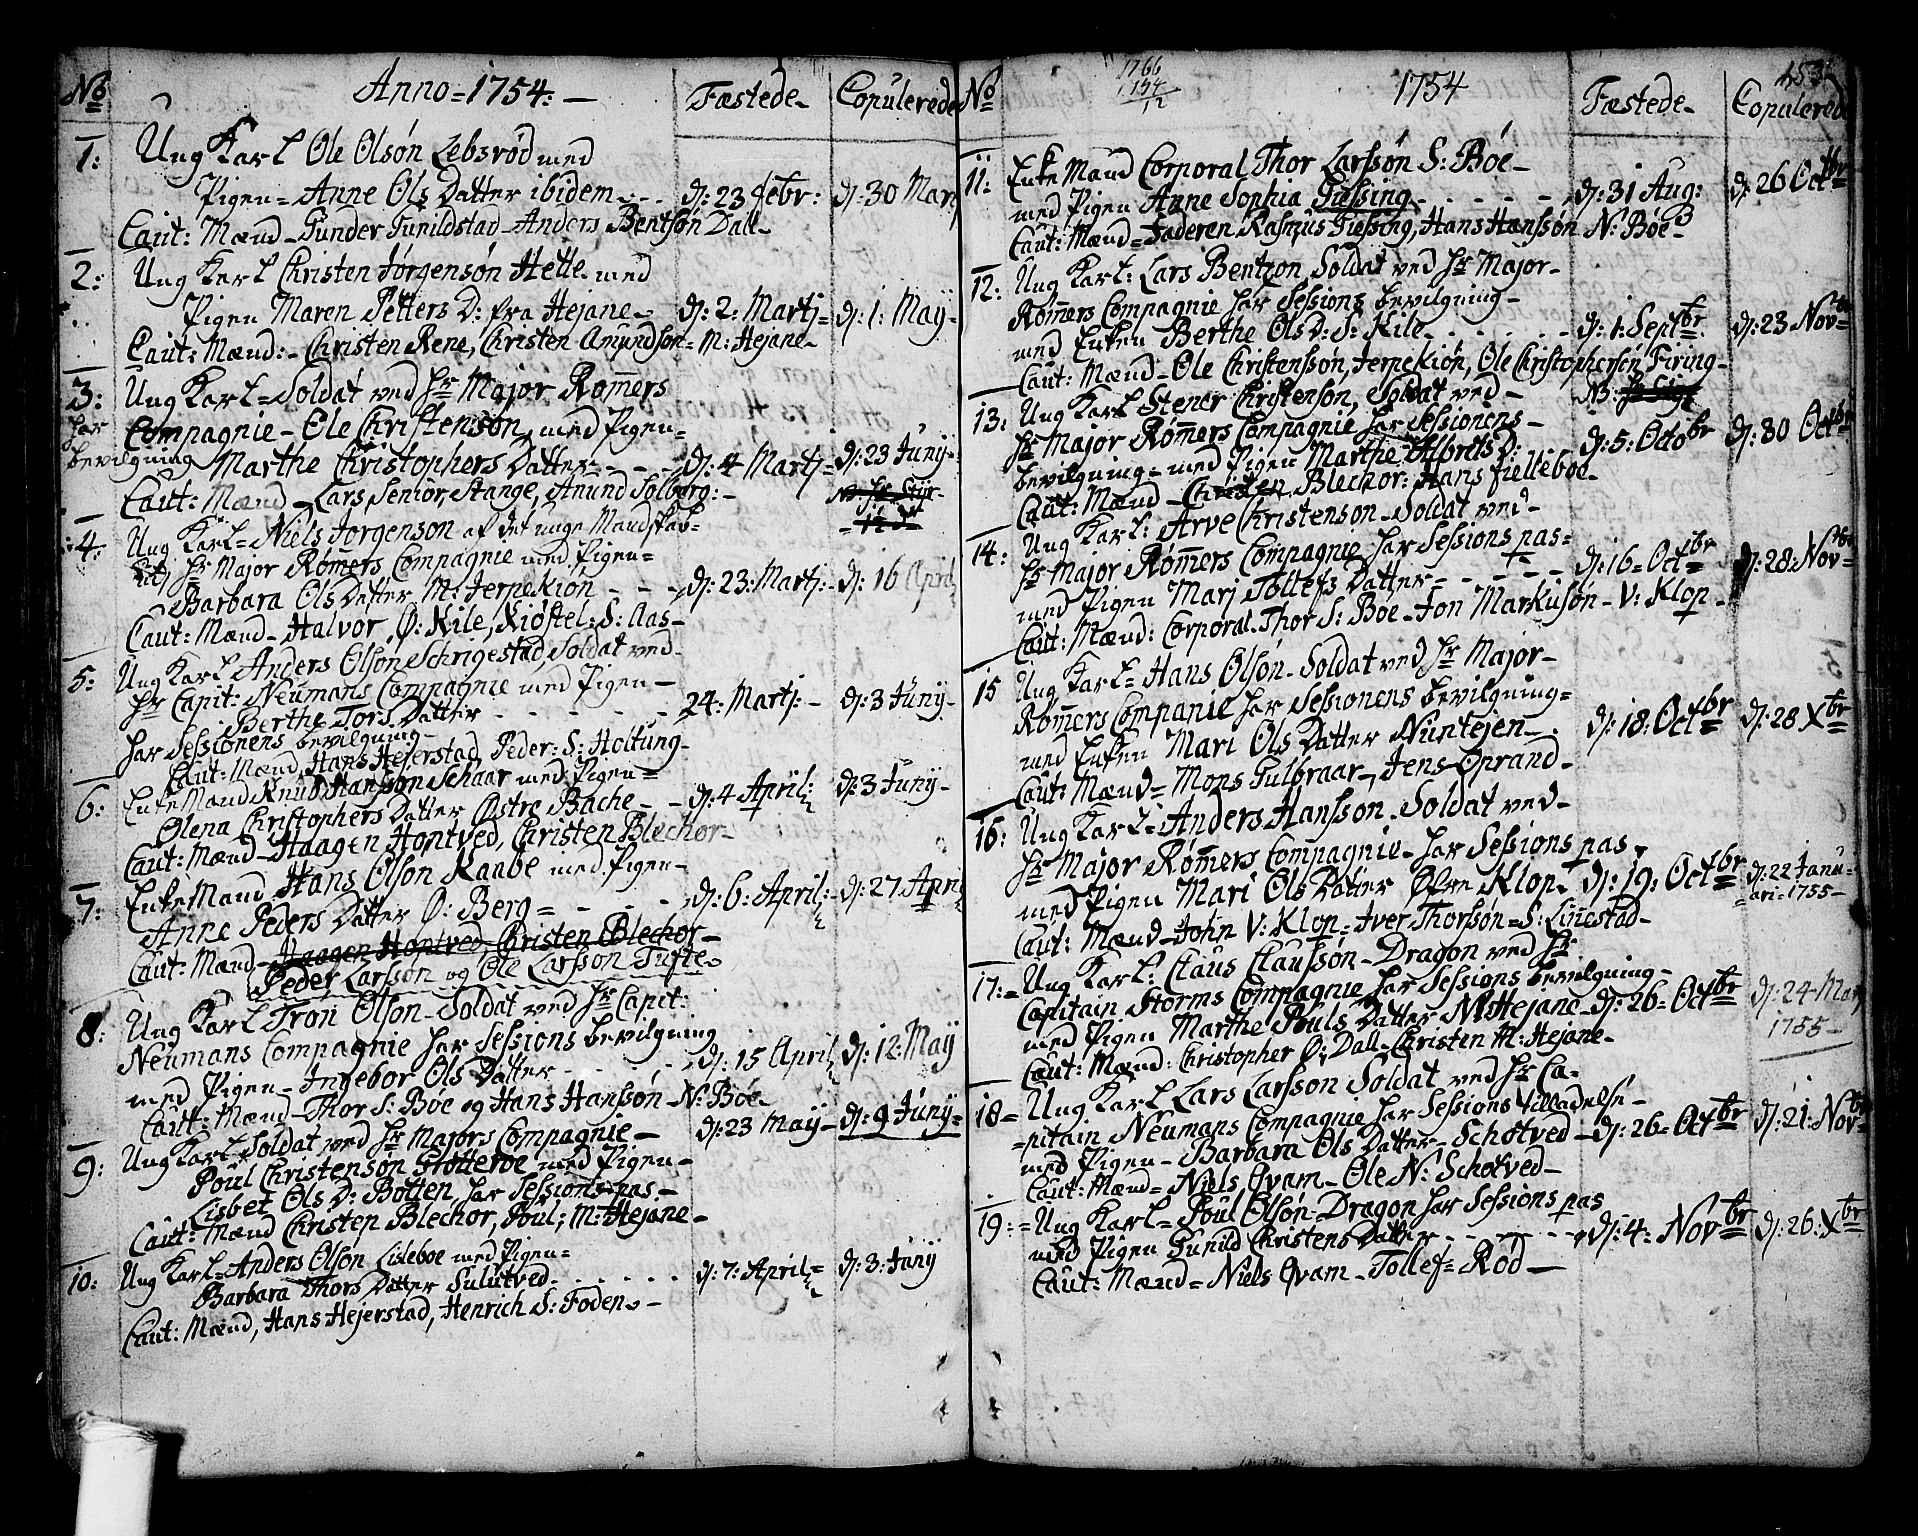 No Anno = 1754: — Fæstede- Copulerede
1: Ung Karl Ole Olsøn Lebsrød med
Pigen = Anne Ols Datter ibidem d: 23 febr: d: 30 Mar
Caut: Mænd - Gunder Gunildstad - Anders Bentsøn Dall-
2: Ung Karl Christen Jørgensøn Hette med
Pigen Maren Petters D: fra Hejane- d: 2: Martj = d: 1: Maÿ-
Caut: Mænd: - Christen Rene, Christen Amundsøn - M: Hejane-
3: Ung Karl = Soldat ved Hr Major Rømers
har Compagnie - Ole Christensøn, med Pigen =
bevilgning Marthe Christophers Datter - - - d: 4 Martj = d: 23 Junÿ -
Caut: Mænd - Lars Seniør, Stange, Amund Solberg: -
4: Ung Karl = Niels Jørgensøn af det unge Mandskab =
Hr Major Rømers Compagnie med Pigen =
Barbara Ols Datter M: Jernekiøn - - - d: 23: Martj: - d: 16 April
Caut: Mænd - Halvor Ø: Kile, Kiøstel: S: Aas -
5: Ung Karl Anders Olsøn Schrigestad, Soldat ved
Hr Capit: Neumans Compagnie med Pigen -
Berthe Tors Datter - - - - - 24: Martj: - d: 3 Junÿ -
har Sessionens bevilgning -
Caut: Mænd, Hans Hejerstad, Peder: S: Holtung -
6: Enke Mand Knud Hansson Schaar med Pigen =
Olena Christophers Datter Østre Bache - - d: 4 April: d: 3 Junÿ -
Caut: Mænd - Haagen Hontved, Christen Blechor -
7: Enke Mand Hans Olsøn Kanbe med Pigen -
Anne Peders Datter Ø: Berg = - - - - d: 6: April: d: 27: April
Caut: Mænd - Haagen Hontved - Christen Blechor -
Peder Larssøn og Ole Larssøn Tufte.
8: Ung Karl Tron Olsøn - Soldat ved Hr Capit:
Neumans Compagnie har Sessions bevilgning
med Pigen - Ingebor Ols Datter - - - - d: 15 April d: 12: Maÿ
Caut: Mænd - Thor S: Bøe og Hans Hanssøn - N: Bøe -
9: Ung Karl Soldat ved Hr Majors Compagnie - d: 23 Maÿ - d: 9 Junÿ =
Poul Christensøn Grotterøe med Pigen -
Lisbet Ols D: Botten, har Sessions pas -
Caut: Mænd Christen Blechor, Poul; M: Hejane -
10: Ung Karl = Anders Olsøn Lisleboe med Pigen =
Barbara Thors Datter Sulutved. - - - - d: 7: April = d: 3: Junÿ
Caut: Mænd, Hans Hejerstad, Henrich S: Foden -
No 1766 1754 12 1754 Fæstede - Copulerede 153
11: Enke Mand Corporal Thor Larssøn S: Bøe -
med Pigen Anne Sophia Giessing - - - - d: 31 Aug: d: 26 Octbr
Caut: Mænd = Faderen Rasmus Giessing, Hans Hanssøn N: Bøe
12: Ung Karl: Lars Bentzon, Soldat ved Hr Major -
Rømers Compagnie har Sessions bevilgning -
med Enken Berthe Ols D: S: Kile - - - - d: 1: Septbr. d: 23 Novbr
Caut: Mænd - Ole Christenssøn, Jernekiøn, Ole Christophersen Firing -
13: Ung Karl Stener Christensøn, Soldat ved -
Hr Major Rømers Compagnie har Sessionens - d: 5: Octobr d: 30 Octbr
bevilgning - med Pigen Marthe Albrets D: -
Caut: Mænd - Christen Blechor: Hans Fielleboe -
14: Ung Karl: Arve Christenson - Soldat ved -
Hr Major Rømers Compagnie har Sessions pas - d: 16 - Octbr d: 28: Novbr
med Pigen Marj Tollefs Datter - - - - -
Caut: Mænd: Corporal Thor S: Bøe - Jon Markusøn - V: Klop -
15 Ung Karl = Hans Olsøn - Soldat ved Hr Major -
Rømers Companie har Sessionens bevilgning = d: 18: Octbr d: 28 Xbr
med Enken Mari Ols Datter Nuntejen -
Caut: Mænd = Mons Gulbraar, Jens Oprand -
16: Ung Karl = Anders Hansson. Soldat ved -
Hr Major Rømers Compagnie - har Sessions pas
med Pigen Mari Ols Datter Øfre Klop. d: 19: Octbr d: 22 Janu-
= ari = 1755 -
Caut: Mænd - John V: Klop - Iver Thorssøn = S: Linestad -
17: = Ung Karl: Claus Claussøn - Dragon ved Hr
Capitain Storms Compagnie har Sessions bevilgning -
med Pigen Marthe Pouls Datter N: Hejane - d: 26 = Octbr d: 24 - Mar
1755 -
Caut: Mænd: Christopher Ø: Dall - Christen M: Hejane -
18 - Ung Karl Lars Larsson Soldat ved Hr Ca-
= pitain Neumans Compagnie har Sessions tilladelse -
med Pigen - Barbara Ols Datter - Schotved - d: 26 = Octbr d: 21: Novbr
Caut: Mænd = Niels Qvam - Ole N: Schotved -
19: = Ung Karl = Poul Olsøn - Dragon har Sessions pas
med Pigen Gunild Christens Datter - - - - d: 4: Novbr d: 26: Xbr
Caut: Mænd = Niels Qvam - Tollef = Rød -